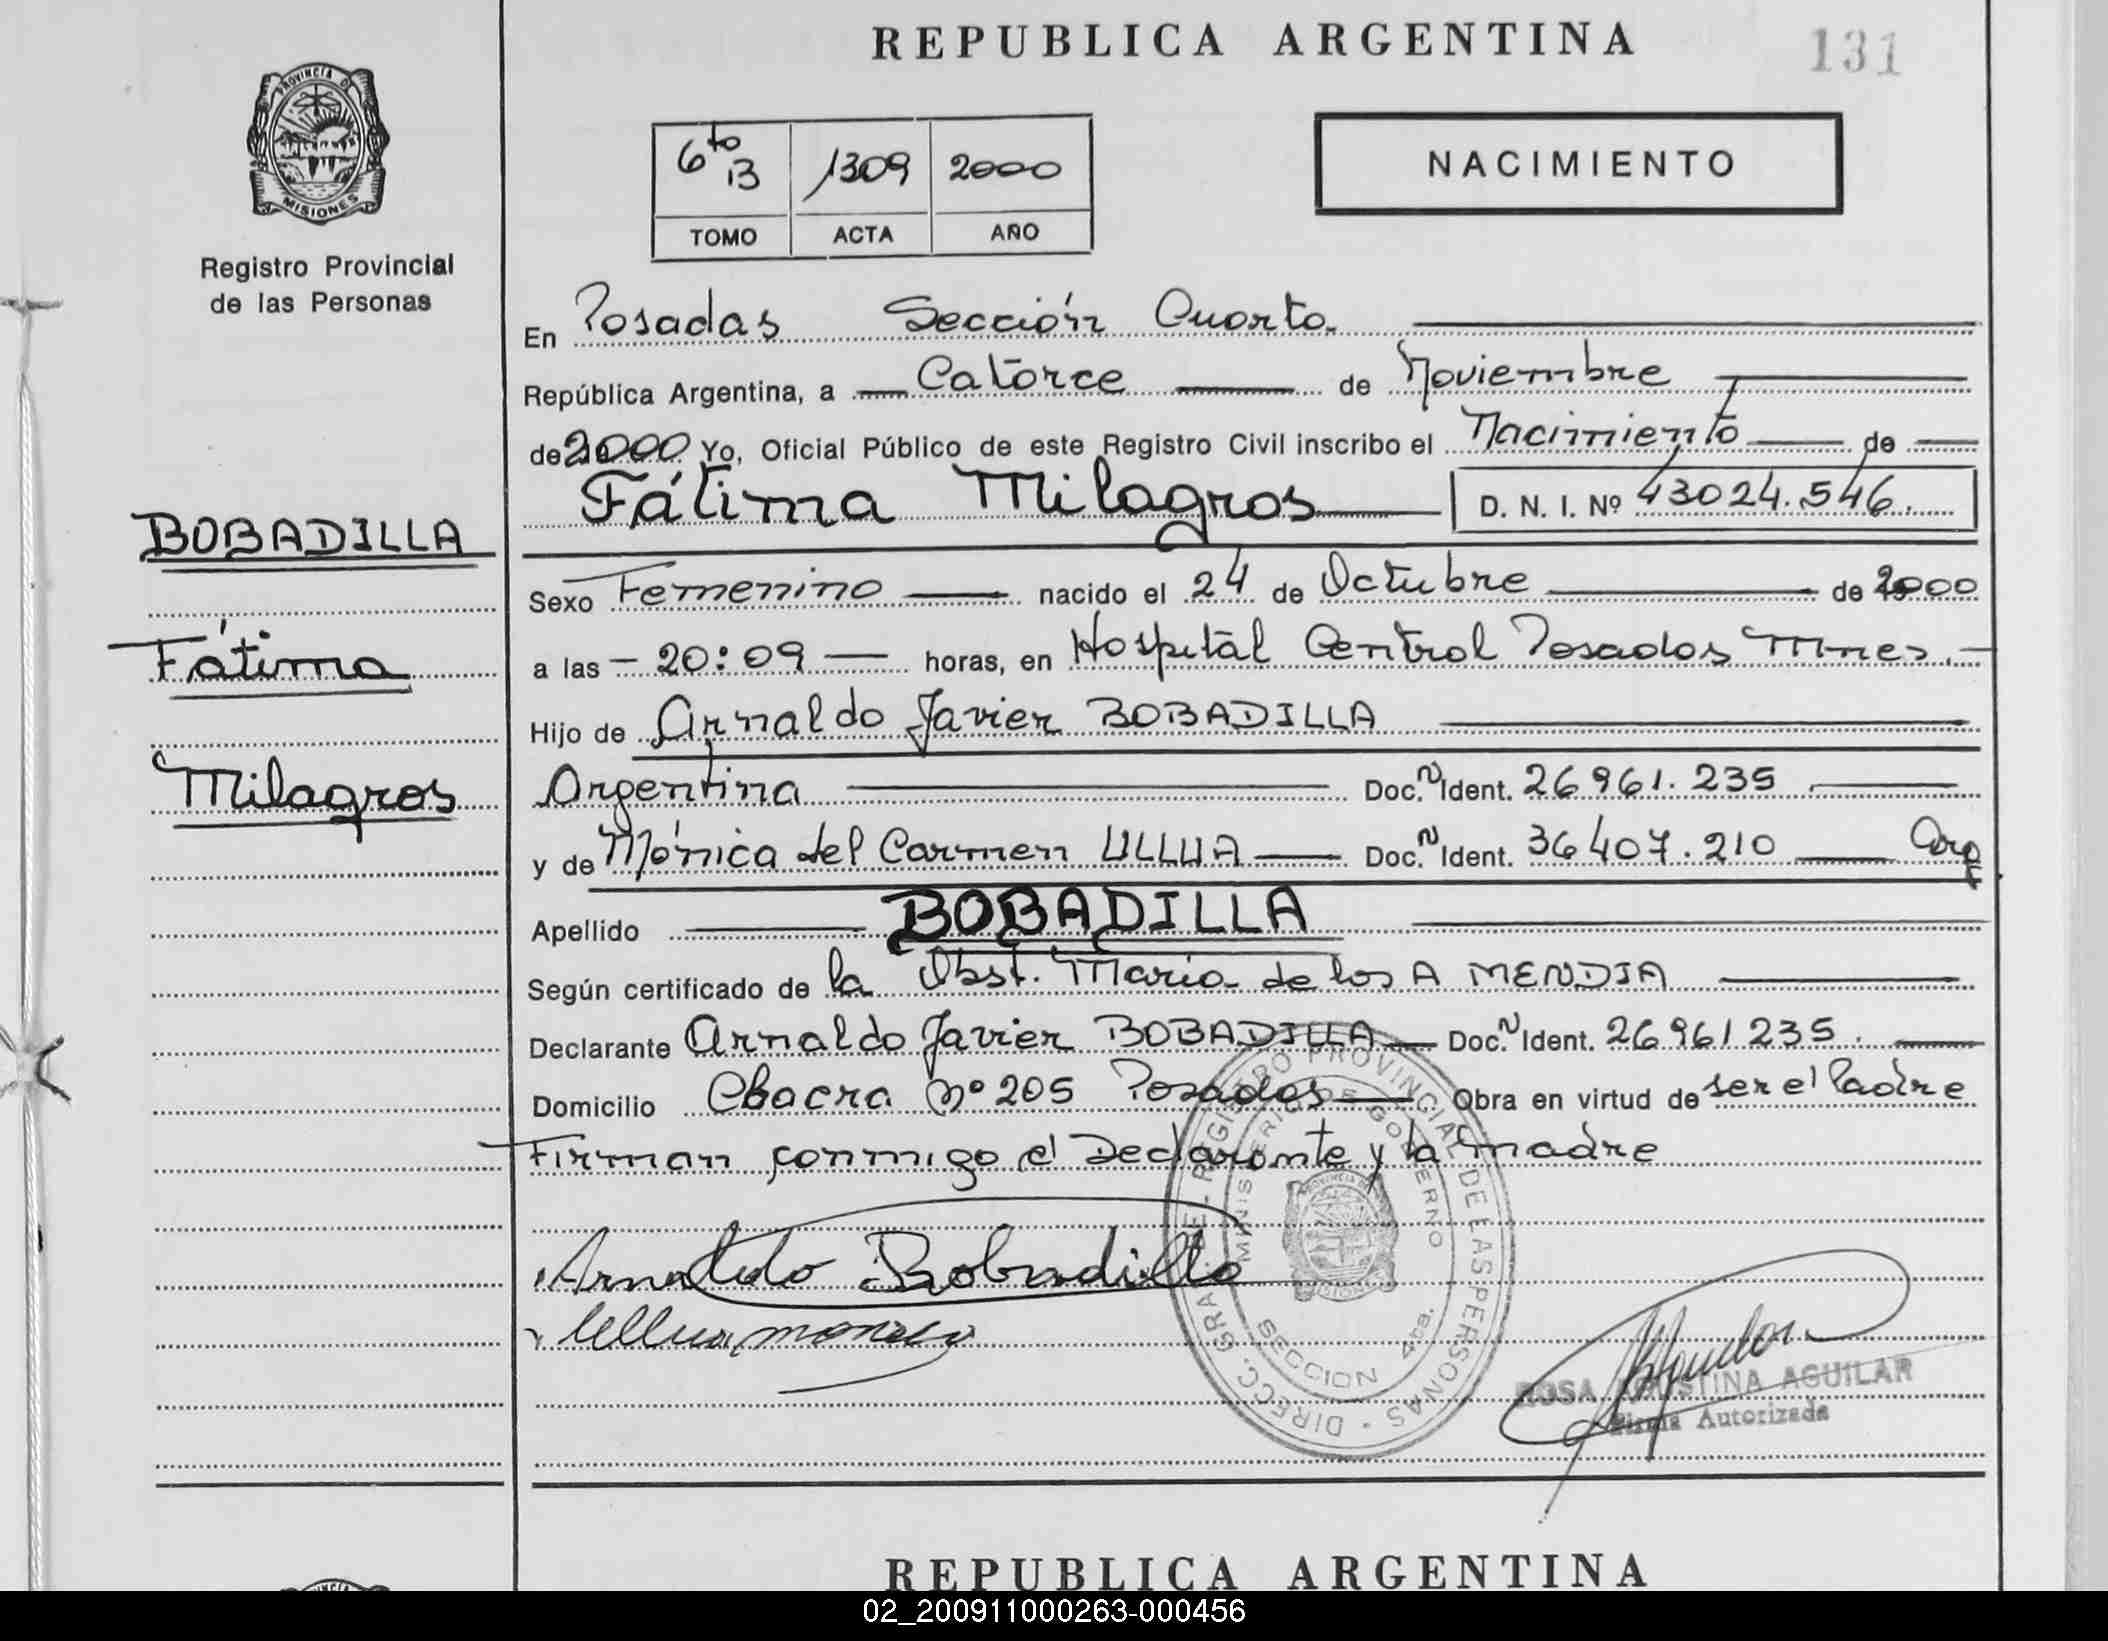 REPUBLICA ARGENTINA
131
PROVINCIA DE
MISIONES
Registro Provincial
de las Personas
6to B 1309 2000
TOMO ACTA AÑO
NACIMIENTO
En Posadas Sección Cuarta
República Argentina, a Catorce de Noviembre
de 2000 Yo, Oficial Público de este Registro Civil inscribo el Nacimiento de
Fátima Milagros D. N. I. Nº 43024.546.
BOBADILLA
Fátima
Milagros
Sexo Femenino nacido el 24 de Octubre de 2000
a las - 20:09 - horas, en Hospital Central Posadas Mnes.-
Hijo de Arnaldo Javier BOBADILLA
Argentina Doc. N Ident. 26961.235
y de Mónica del Carmen ULLUA Doc. N Ident. 36407.210 Arg
Apellido BOBADILLA
Según certificado de la Obst. María de los A MENDIA
Declarante Arnaldo Javier BOBADILLA Doc. N Ident. 26961235.
Domicilio Chacra Nº 205 Posadas Obra en virtud de ser el Padre
Firman conmigo el Declarante y la madre
Arnaldo Bobadilla
Ullua monica
DIRECC. GRAL. DE REGISTRO PROVINCIAL DE LAS PERSONAS
MINISTERIO DE GOBIERNO
SECCION 4ta.
ROSA AGUSTINA AGUILAR
Firma Autorizada
REPUBLICA ARGENTINA
02_200911000263-000456